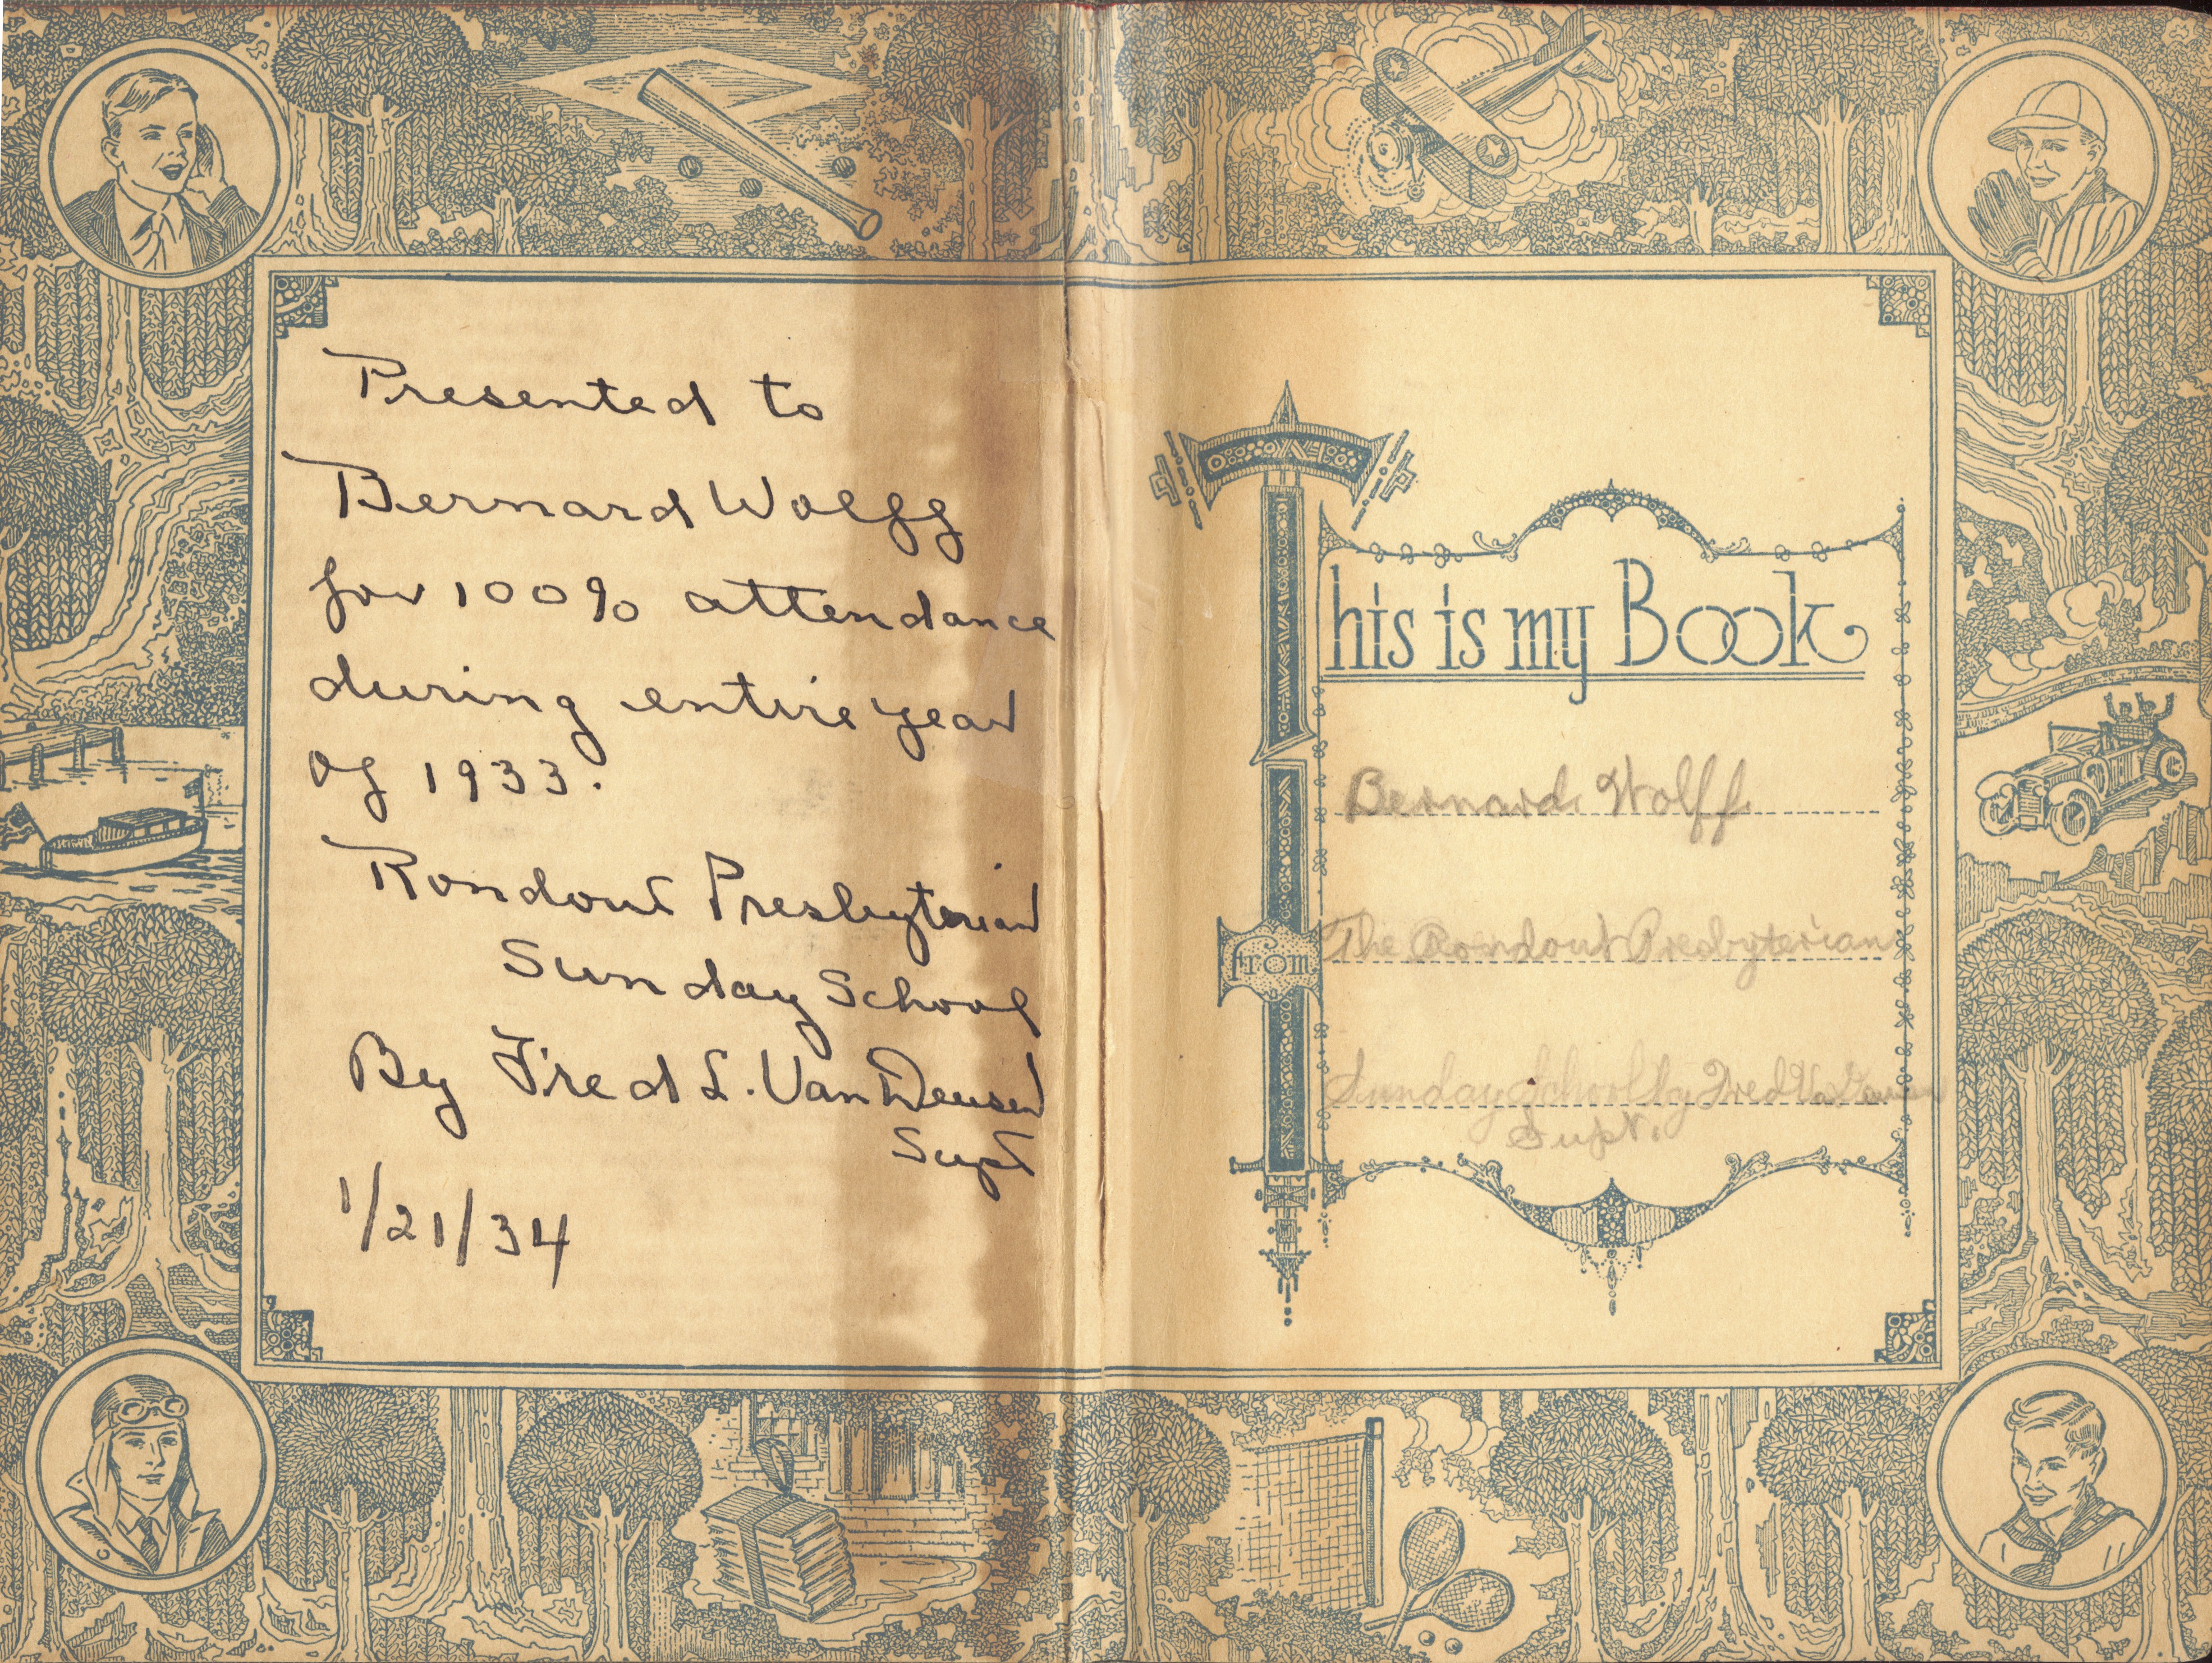 Presented to
Bernard Wolff
for 100% attendance
during entire year
of 1933.
Rondout Presbyterian
Sunday School
By Fred L. Van Deusen
Supt
1/21/34
This is my Book
Bernard Wolff
from The Rondout Presbyterian
Sunday School by Fred Van Deusen
Supt.